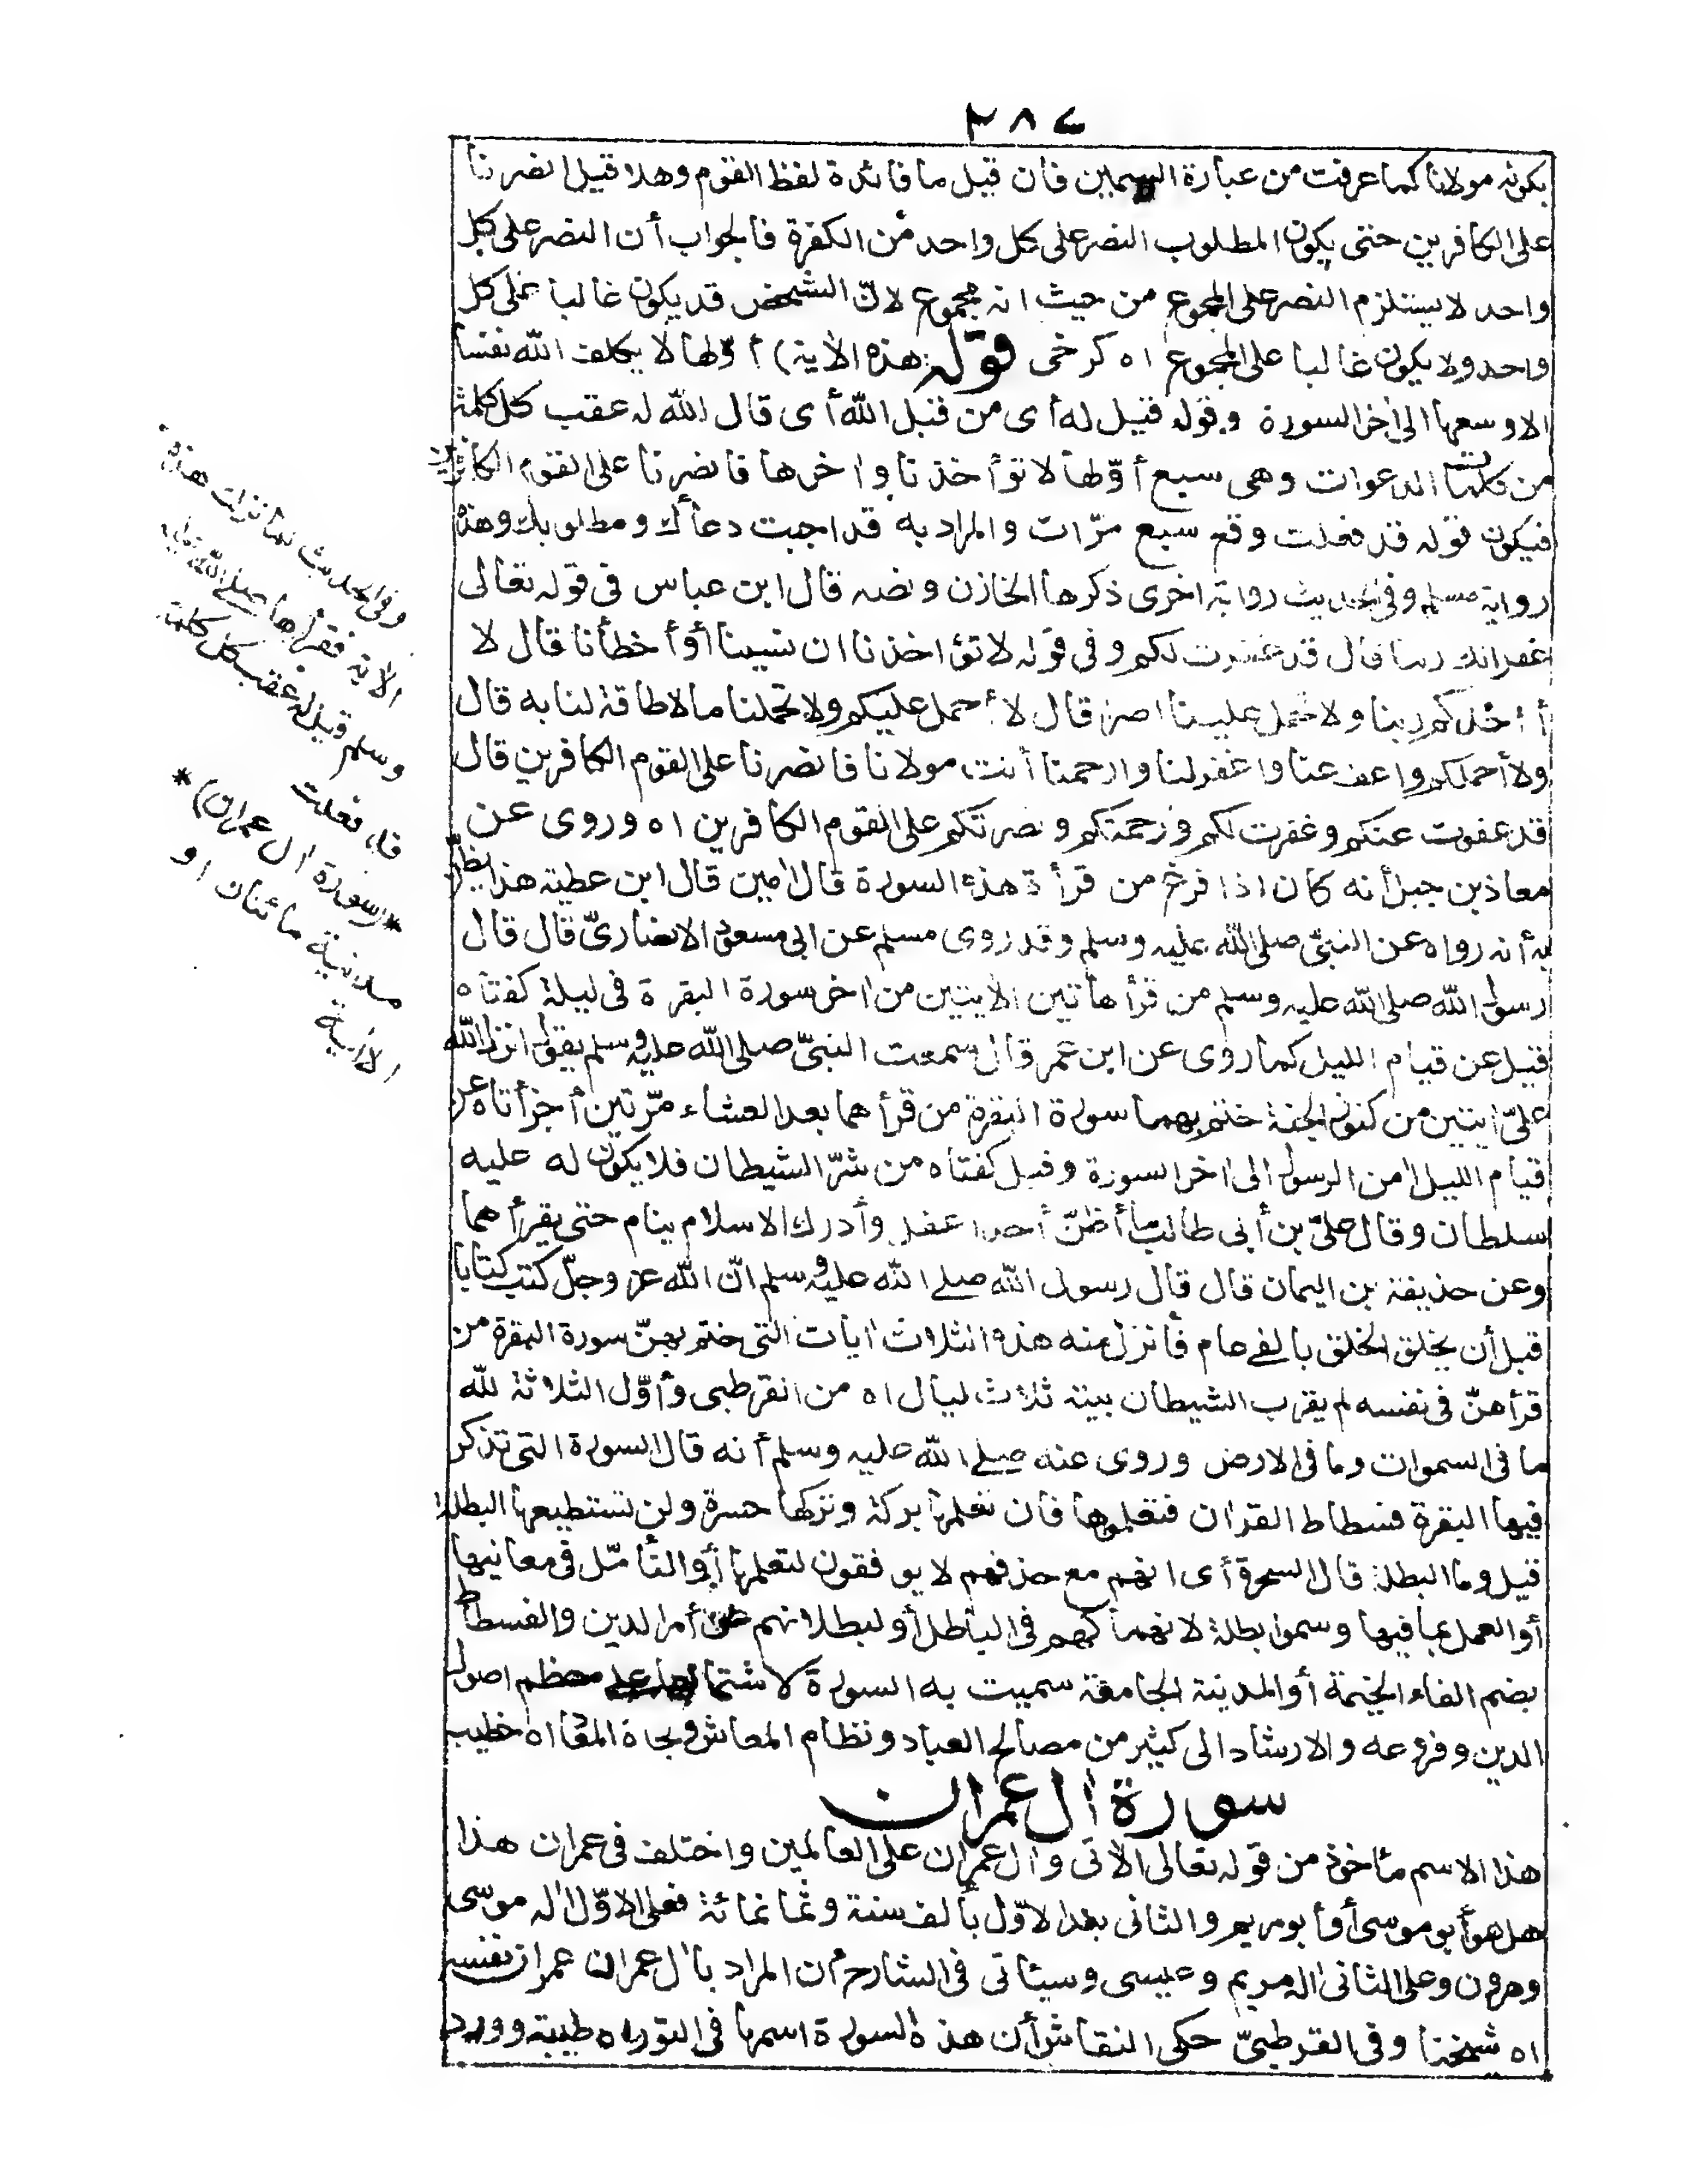 ٢٨٤
بكونه مولانا كما عرفت من عبارة السمين فان قيل ما فائدة لفظ القوم وهلا قيل انصرنا
على الكافرين حتى يكون المطلوب النصر على كل واحد من الكفرة فالجواب أن النصر على كل
واحد لا يستلزم النصر على المجموع من حيث انه مجموع لانّ الشخص قد يكون غالبا على كل
واحد ولا يكون غالبا على المجموع اه كرخى قوله هذه الاية) أوّلها لا يكلف الله نفسا
الا وسعها الى اٰخر السورة وقوله قيل له أى من قبل الله أى قال الله له عقب كل كلمة
من كلمات الدعوات وهى سبع أوّلها لا تؤأخذنا واخرها فانصرنا على القوم الكافرين
فيكون قوله قد فعلت وقع سبع مرّات والمراد به قد اجبت دعأك ومطلوبك وهذه
رواية مسلم وفى الحديث رواية اخرى ذكرها الخازن ونصه قال ابن عباس فى قوله تعالى
غفرانك ربنا قال قد غفرت لكم وفى قوله لا تؤاخذنا ان نسينا أو أخطأنا قال لا
أؤاخذكم ربنا ولا تحمل علينا اصرا قال لا أحمل عليكم ولا تحملنا ما لا طاقة لنا به قال
ولا أحملكم واعف عنا واغفر لنا وارحمنا أنت مولانا فانصرنا على القوم الكافرين قال
قد عفوت عنكم وغفرت لكم ورحمتكم ونصرتكم على القوم الكافرين اه وروى عن
معاذ بن جبل أنه كان اذا فرغ من قرأة هذه السورة قال اٰمين قال ابن عطية هذا يظنّ
به أنه رواه عن النبىّ صلى الله عليه وسلم وقد روى مسلم عن ابى مسعود الانصارىّ قال قال
رسول الله صلى الله عليه وسلم من قرأ هاتين الايتين من اخر سورة البقرة فى ليلة كفتاه
قيل عن قيام الليل كما روى عن ابن عمر قال سمعت النبىّ صلى الله عليه وسلم يقول انزل الله
علىّ ايتين من كنوز الجنة ختم بهما سورة البقرة من قرأهما بعد العشاء مرّتين أجزأتاه عن
قيام الليل اٰمن الرسول الى اٰخر السورة وقيل كفتاه من شرّ الشيطان فلا يكون له عليه
سلطان وقال علىّ بن أبى طالب ما أظنّ أحدا عقل وأدرك الاسلام ينام حتى يقرأهما
وعن حذيفة بن اليمان قال قال رسول الله صلى الله عليه وسلم انّ الله عز وجلّ كتب كتابا
قبل أن يخلق الخلق بالفى عام فأنزل منه هذه الثلاث اٰيات التى ختم بهنّ سورة البقرة من
قرأهنّ فى نفسه لم يقرب الشيطان بيته ثلاث ليال اه من القرطبى وأوّل الثلاثة لله
ما فى السموات وما فى الارض وروى عنه صلى الله عليه وسلم أنه قال السورة التى تذكر
فيها البقرة فسطاط القران فتعلموها فان تعلمها بركة وتركها حسرة ولن تستطيعها البطلة
قيل وما البطلة قال السحرة أى انهم مع حذقهم لا يوفقون لتعلمها أو التأمّل فى معانيها
أو العمل بما فيها وسموا بطلة لانهماكهم فى الباطل أو لبطلانهم عن أمر الدين والفسطاط
بضم الفاء الخيمة أو المدينة الجامعة سميت به السورة لاشتمالها على معظم اصول
الدين وفروعه والارشاد الى كثير من مصالح العباد ونظام المعاش ونجاة المعاد اه خطيب
سورة اٰل عمران
هذا الاسم مأخوذ من قوله تعالى الاٰتى واٰل عمران على العالمين واختلف فى عمران هذا
هل هو أبو موسى أو أبو مريم والثانى بعد الاوّل بألف سنة وثمانمائة فعلى الاوّل اٰله موسى
وهرون وعلى الثانى اٰله مريم وعيسى وسيأتى فى الشارح أن المراد باٰل عمران عمران نفسه
اه شيخنا وفى القرطبىّ حكى النقاش أن هذه السورة اسمها فى التوراه طيبة وورد
وفى الحديث لما نزلت هذه
الاٰية فقرأها صلى الله عليه
وسلم قيل له عقب كل كلمة
قد فعلت
*(سورة اٰل عمران)*
مدنية مائتان او
الا اٰية